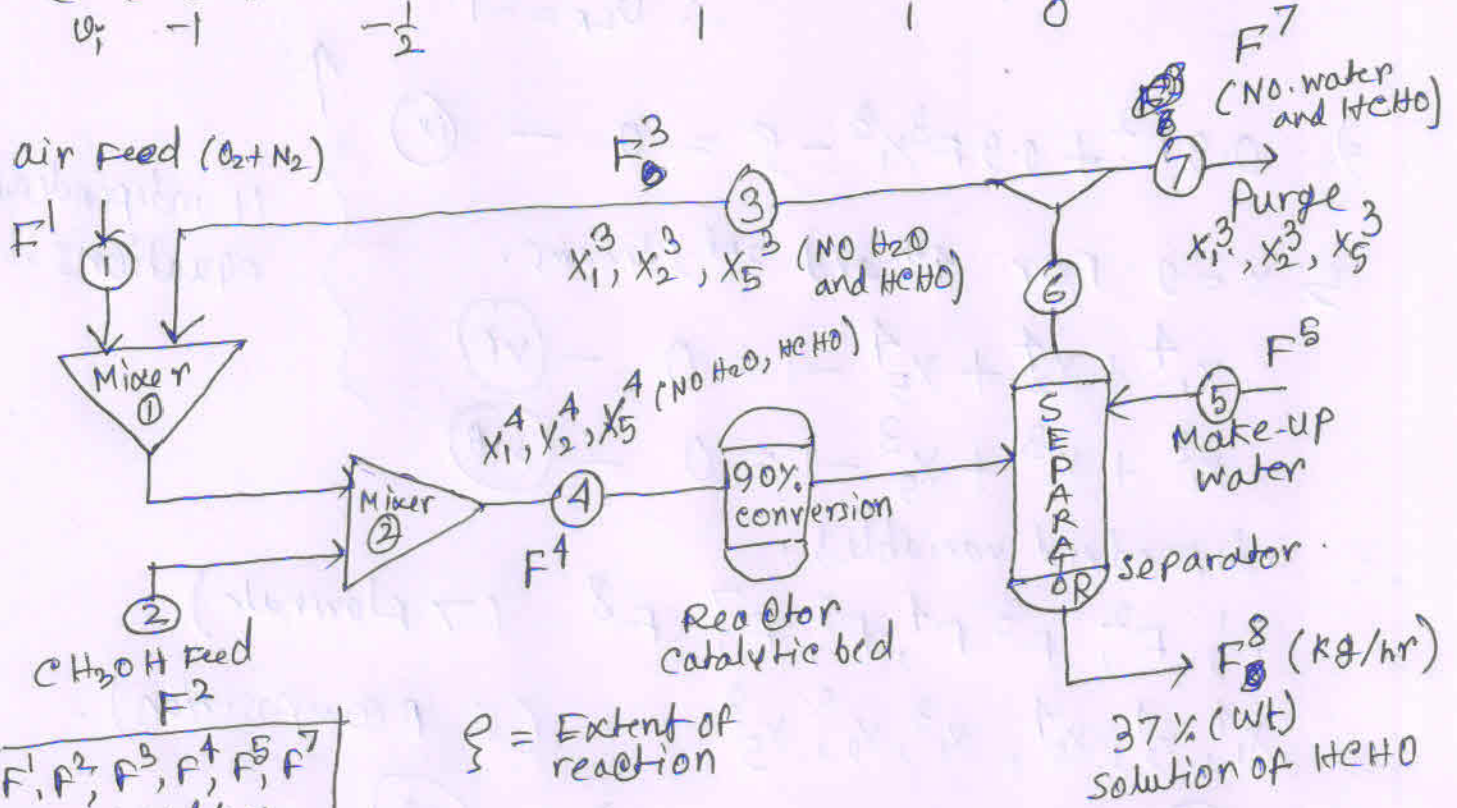 υᵢ -1 -1/2 1 1 0
F⁷
(NO. water
and HCHO)
air Feed (O₂+N₂)
F³
F¹
①
③
⑦
Purge
X₁³, X₂³, X₅³
X₁³, X₂³, X₅³ (NO H₂O
and HCHO)
⑥
Mixer
①
X₁⁴, X₂⁴, X₅⁴ (NO H₂O, HCHO)
F⁵
⑤
Make-up
water
SEPARATOR
90%.
conversion
Mixer
②
④
F⁴
separator
②
Reactor
catalytic bed
CH₃OH Feed
F²
F⁸ (Kg/hr)
37% (Wt)
solution of HCHO
ξ = Extent of
reaction
F¹, F², F³, F⁴, F⁵, F⁷